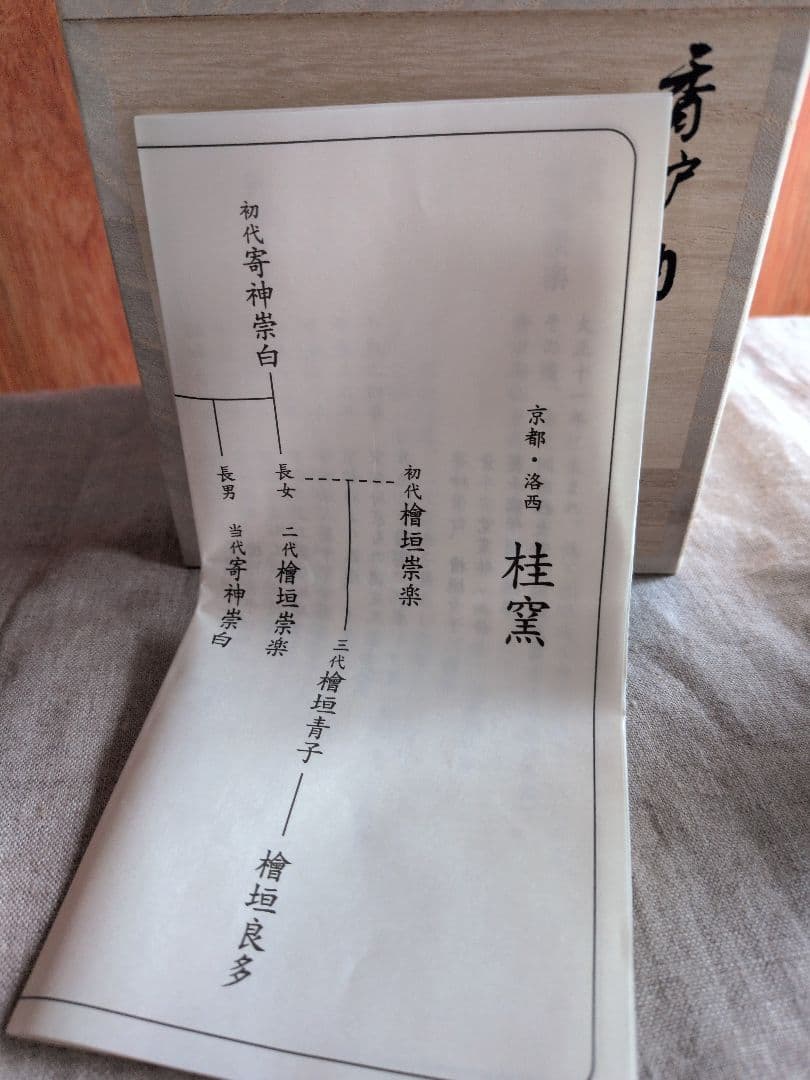 香炉
京都・洛西
桂窯
初代 檜垣崇楽
三代 檜垣青子
檜垣良多
初代 寄神崇白
長女
二代 檜垣崇楽
長男
当代 寄神崇白